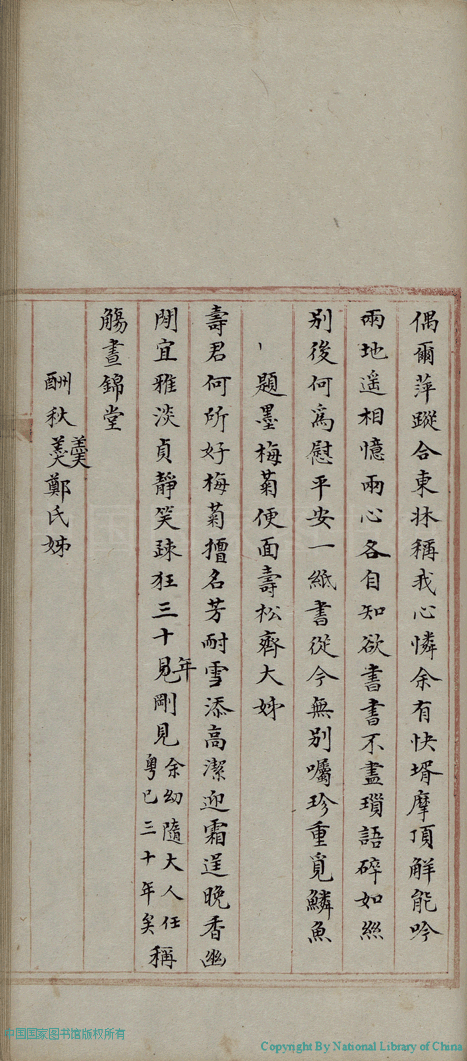 偶爾萍蹤合東牀稱我心憐余有快壻摩頂解能吟
兩地遥相憶兩心各自知欲書書不盡瑣語碎如絲
别後何爲慰平安一紙書從今無别囑珍重覓鱗魚
題墨梅菊便面壽松齊大姊
壽君何所好梅菊擅名芳耐雪添高潔迎霜逞晚香幽
閒宜雅淡貞靜笑疎狂三十見年剛見余幼隨大人任粤已三十年矣稱
觴晝錦堂
酬秋羹鄭氏姊
中国国家图书馆版权所有
Copyright By National Library of China